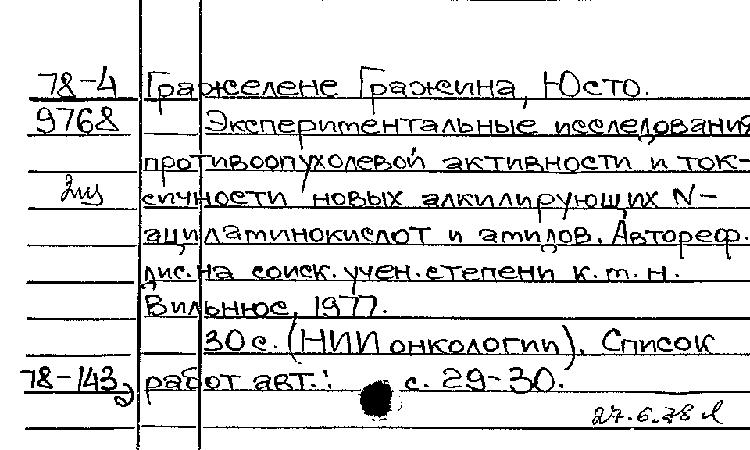 78-4 Гражселене Гражина, Юсто.
9768 Экспериментальные исследования
противоопухолевой активности и ток-
2 экз сичности новых алкилирующих N-
ациламинокислот и амидов. Автореф.
дис. на соиск. учен. степени к. м. н.
Вильнюс, 1977.
30 с. (НИИ онкологии). Список
78-143 работ авт.: с. 29-30.
27.6.78